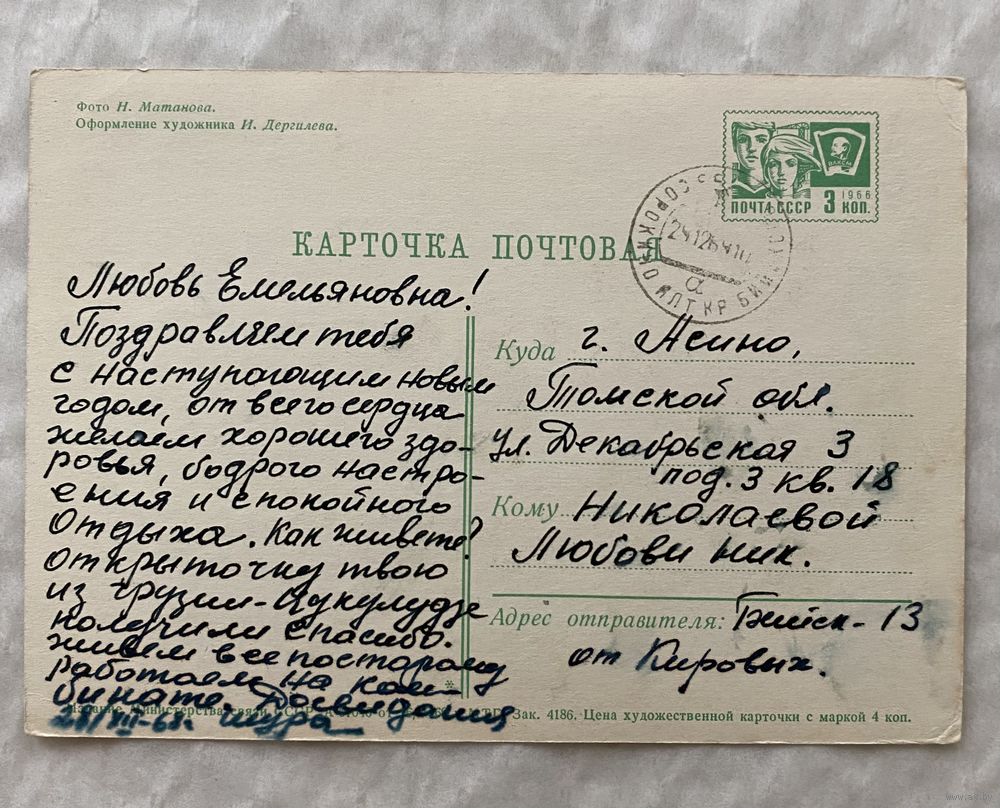 Фото Н. Матанова.
Оформление художника И. Дергилева.
ВЛКСМ
1966
ПОЧТА СССР 3 КОП.
СОРОКИНО АЛТ КР
КАРТОЧКА ПОЧТОВАЯ
Любовь Емельяновна!
Поздравляем тебя
с наступающим новым
годом, от всего сердца
желаем хорошего здо-
ровья, бодрого настро-
ения и спокойного
отдыха. Как живете?
открыточку твою
из Грузии-Цукулудзе
получили спасибо.
живем все по старому
Работаем на ком-
бинате Досвидания
28/XII-68г. Шура
Куда г. Асино,
Томской обл.
ул. Декабрьская 3
под. 3 кв. 18
Кому Николаевой
Любови Ник.
Адрес отправителя: Бийск-13
от Кировых.
Издание Министерства связи СССР
Зак. 4186. Цена художественной карточки с маркой 4 коп.
www.ay.by